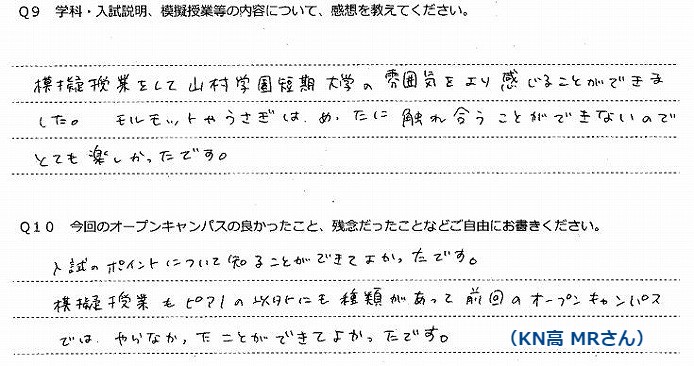 Q9 学科・入試説明、模擬授業等の内容について、感想を教えてください。
模擬授業をして山村学園短期大学の雰囲気をより感じることができま
した。 モルモットやうさぎは、めったに触れ合うことができないので
とても楽しかったです。
Q10 今回のオープンキャンパスの良かったこと、残念だったことなどご自由にお書きください。
入試のポイントについて知ることができてよかったです。
模擬授業もピアノの以外にも種類があって前回のオープンキャンパス
では、やらなかったことができてよかったです。 （KN高 MRさん）